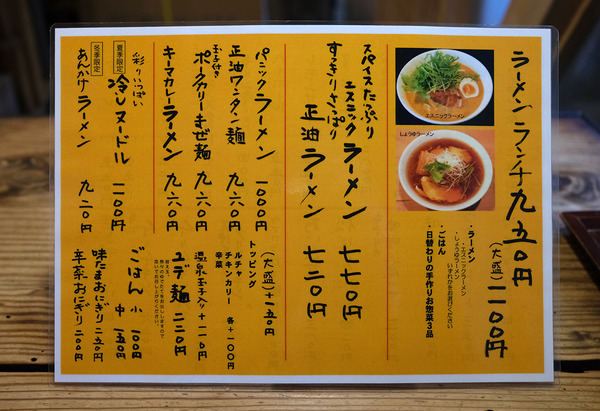 ラーメンランチ 九五〇円
(大盛) 一一〇〇円
エスニックラーメン
しょうゆラーメン
・ラーメン
・エスニックラーメン
・しょうゆラーメン
いずれかをお選びください
・ごはん
・日替わりの手作りお惣菜3品
スパイスたっぷり
エスニックラーメン 七七〇円
すっきりさっぱり
正油ラーメン 七二〇円
(大盛)+一五〇円
パニックラーメン 一〇〇〇円
正油ワンタン麺 九六〇円
玉子付き
ポークカリーまぜ麺 九六〇円
キーマカレーラーメン 九六〇円
トッピング
ルチャ
チキンカリー 各+一〇〇円
辛菜
温泉玉子入り+一一〇円
ユデ麺 二二〇円
彩りいっぱい
夏季限定
冷しヌードル 一一〇〇円
冬季限定
あんかけラーメン 九二〇円
ごはん 小 一〇〇円
中 一五〇円
味たまおにぎり 二五〇円
辛菜おにぎり 二〇〇円